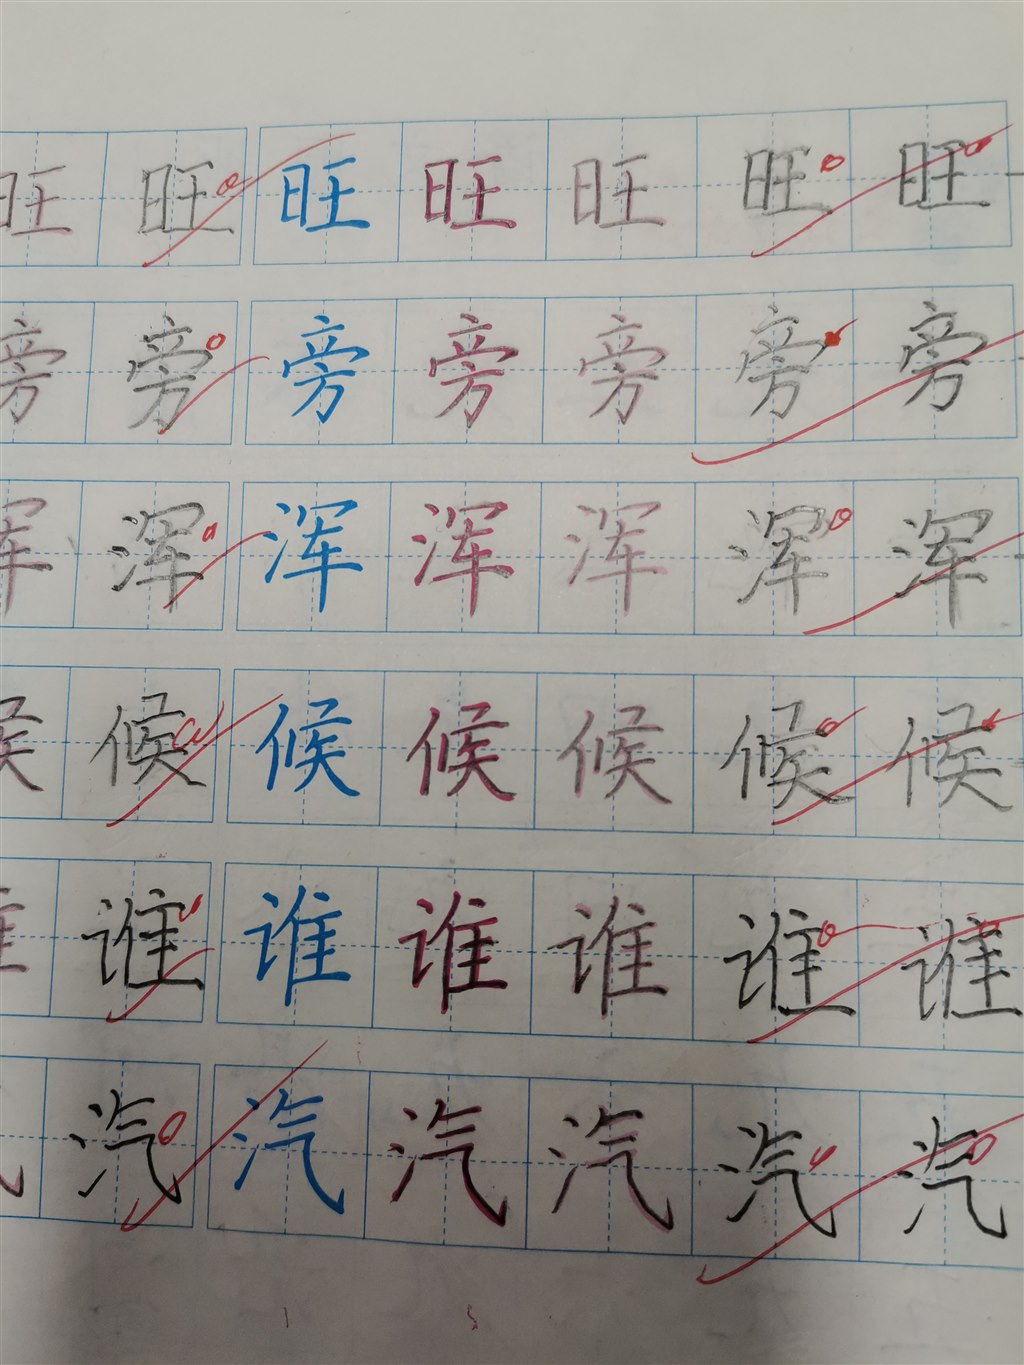 旺 旺 旺 旺 旺 旺 旺
旁 旁 旁 旁 旁 旁 旁
浑 浑 浑 浑 浑 浑 浑
候 候 候 候 候 候 候
谁 谁 谁 谁 谁 谁
汽 汽 汽 汽 汽 汽